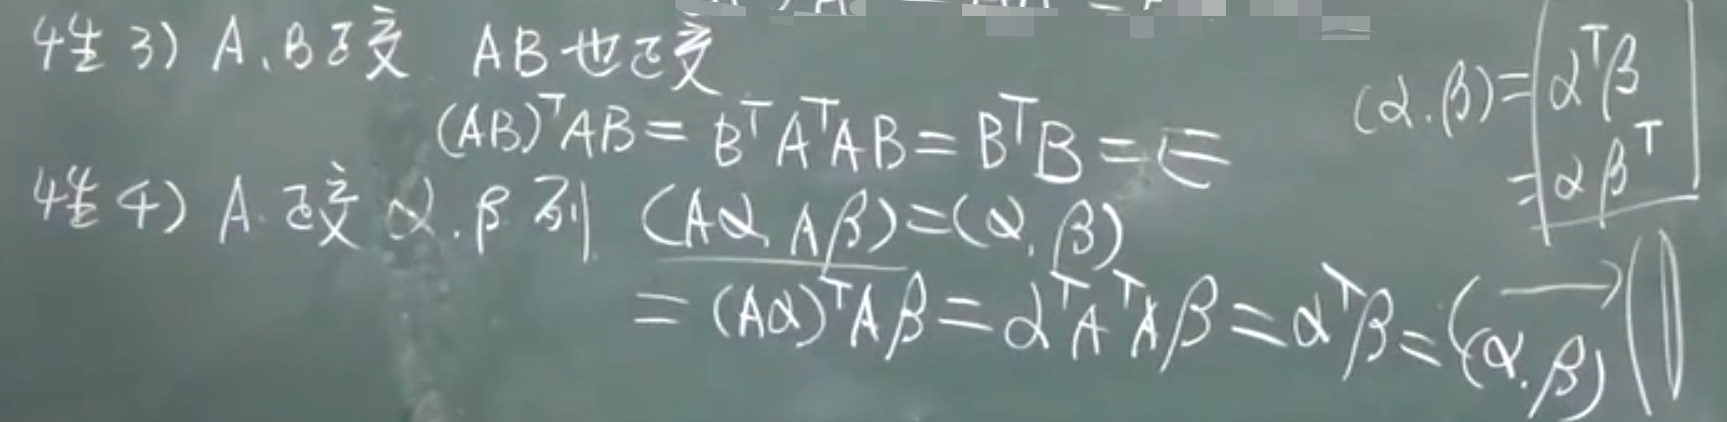 性3) A、B正交 AB也正交
(AB)ᵀAB = BᵀAᵀAB = BᵀB = E
性4) A.正交 α.β列 (Aα, Aβ)=(α, β)
= (Aα)ᵀAβ = αᵀAᵀAβ = αᵀβ = (α.β)
(α.β) = αᵀβ
= αβᵀ